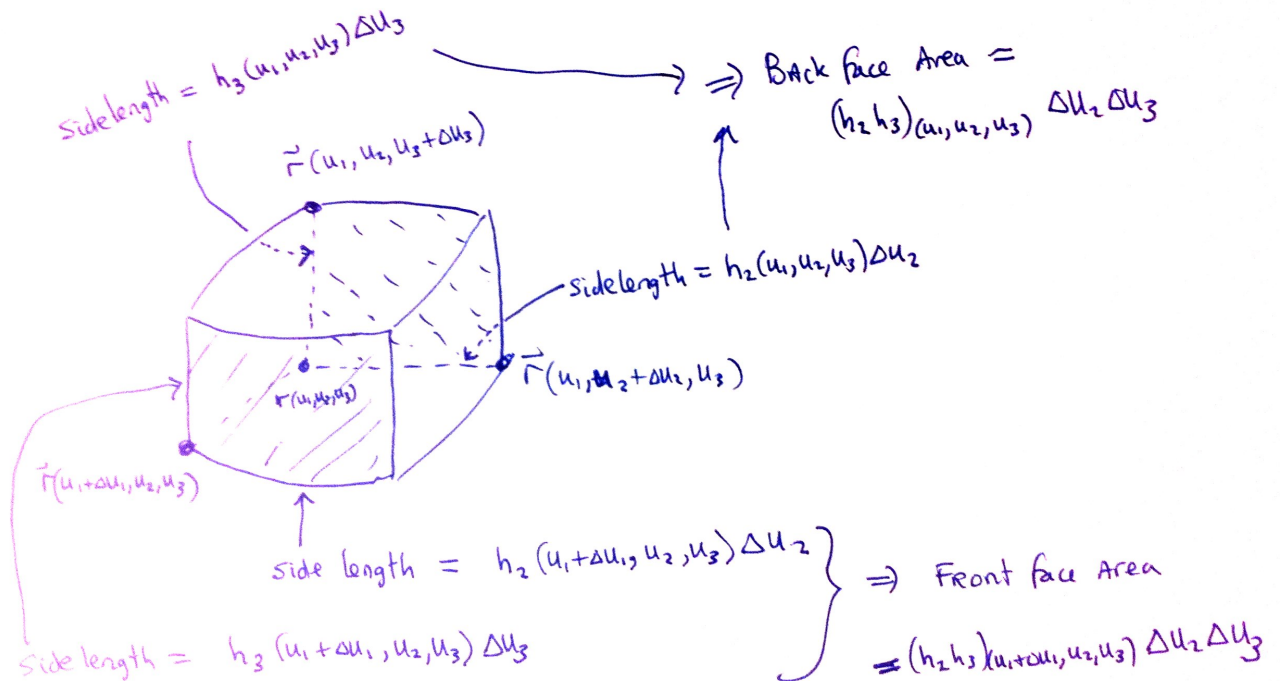 sidelength = h₃(u₁,u₂,u₃)Δu₃
⇒ Back face Area =
(h₂h₃)(u₁,u₂,u₃) Δu₂Δu₃
r⃗(u₁,u₂,u₃+Δu₃)
sidelength = h₂(u₁,u₂,u₃)Δu₂
r⃗(u₁,u₂+Δu₂,u₃)
r(u₁,u₂,u₃)
r⃗(u₁+Δu₁,u₂,u₃)
side length = h₂(u₁+Δu₁,u₂,u₃)Δu₂
⇒ Front face Area
sidelength = h₃(u₁+Δu₁,u₂,u₃)Δu₃
=(h₂h₃)(u₁+Δu₁,u₂,u₃) Δu₂Δu₃